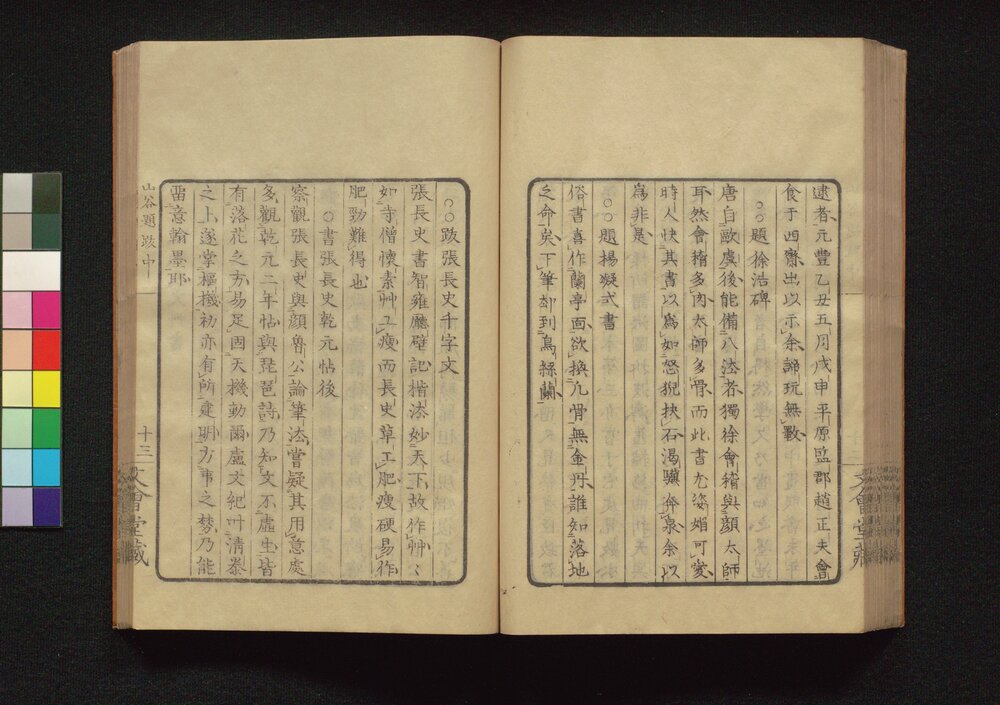 逮者元豐乙丑五月戊申平原監郡趙正夫會
食于西齋出以示余諦玩無斁
○○題徐浩碑
唐自歐虞後能備八法者獨徐會稽與顏太師
耳然會稽多肉太師多骨而此書尤姿媚可愛
時人快其書以爲如怒猊抉石渴驥奔泉余以
爲非是
○○題楊凝式書
俗書喜作蘭亭面欲換凡骨無金丹誰如落地
之命矣下筆却到烏絲闌
○○跋張長史千字文
張長史書智雍廳壁記楷法妙天下故作草草
如寺僧懷素艸工瘦而長史草工肥瘦硬易作
肥勁難得也
○書張長史乾元帖後
察觀張長史與顏魯公論筆法嘗疑其用意處
多觀乾元二年帖與琵琶詩乃知文不虛生皆
有落花之方易足因天機動爾盧文紀叶清泰
之上遂掌樞機初亦有所建明方事之棼乃能
留意翰墨耶
山谷題跋中
十三
文會堂藏
文會堂藏